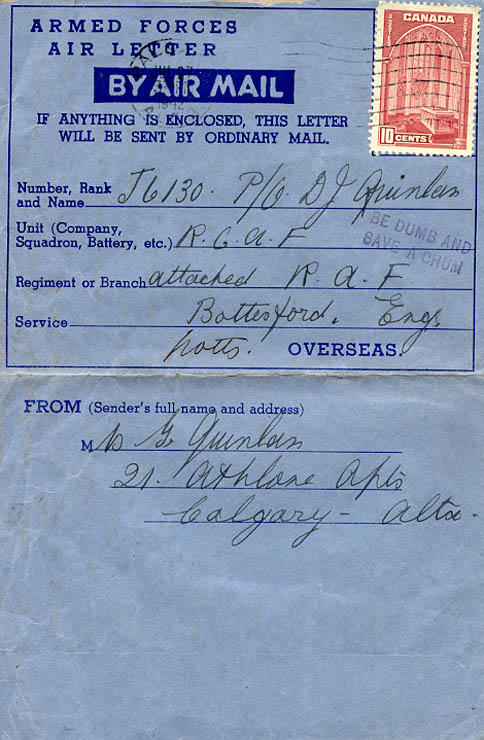 ARMED FORCES
AIR LETTER
BY AIR MAIL
IF ANYTHING IS ENCLOSED, THIS LETTER
WILL BE SENT BY ORDINARY MAIL.
CANADA
POSTAGE POSTES
10 CENTS
1942
Number, Rank
and Name J6130. P/O D J Quinlan
Unit (Company,
Squadron, Battery, etc.) R.C.A.F
BE DUMB AND
SAVE A CHUM
Regiment or Branch attached R.A.F
Service Bottesford, Eng.
Notts. OVERSEAS.
FROM (Sender's full name and address)
M G Quinlan
21. Athlone Apts
Calgary - Alta.